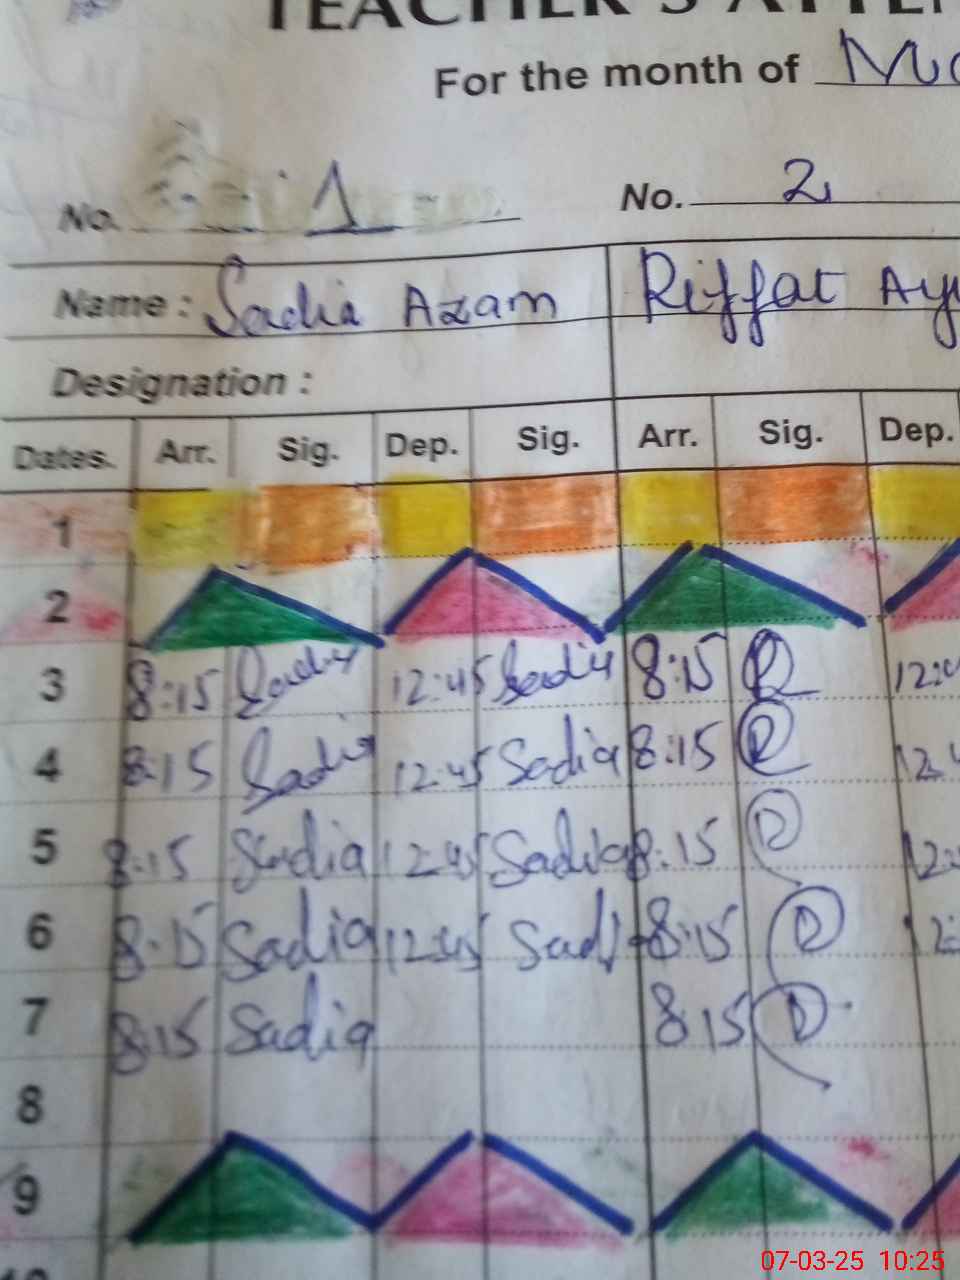 TEACHER'S
For the month of
No. 1 No. 2
Name : Sadia Azam Riffat
Designation :
Dates. Arr. Sig. Dep. Sig. Arr. Sig. Dep.
1
2
3 8:15 Sadia 12:45 Sadia 8:15
4 8:15 Sadia 12:45 Sadia 8:15
5 8:15 Sadia 12:45 Sadia 8:15
6 8:15 Sadia 12:45 Sadi 8:15
7 8:15 Sadia 8:15
8
9
10
07-03-25 10:25